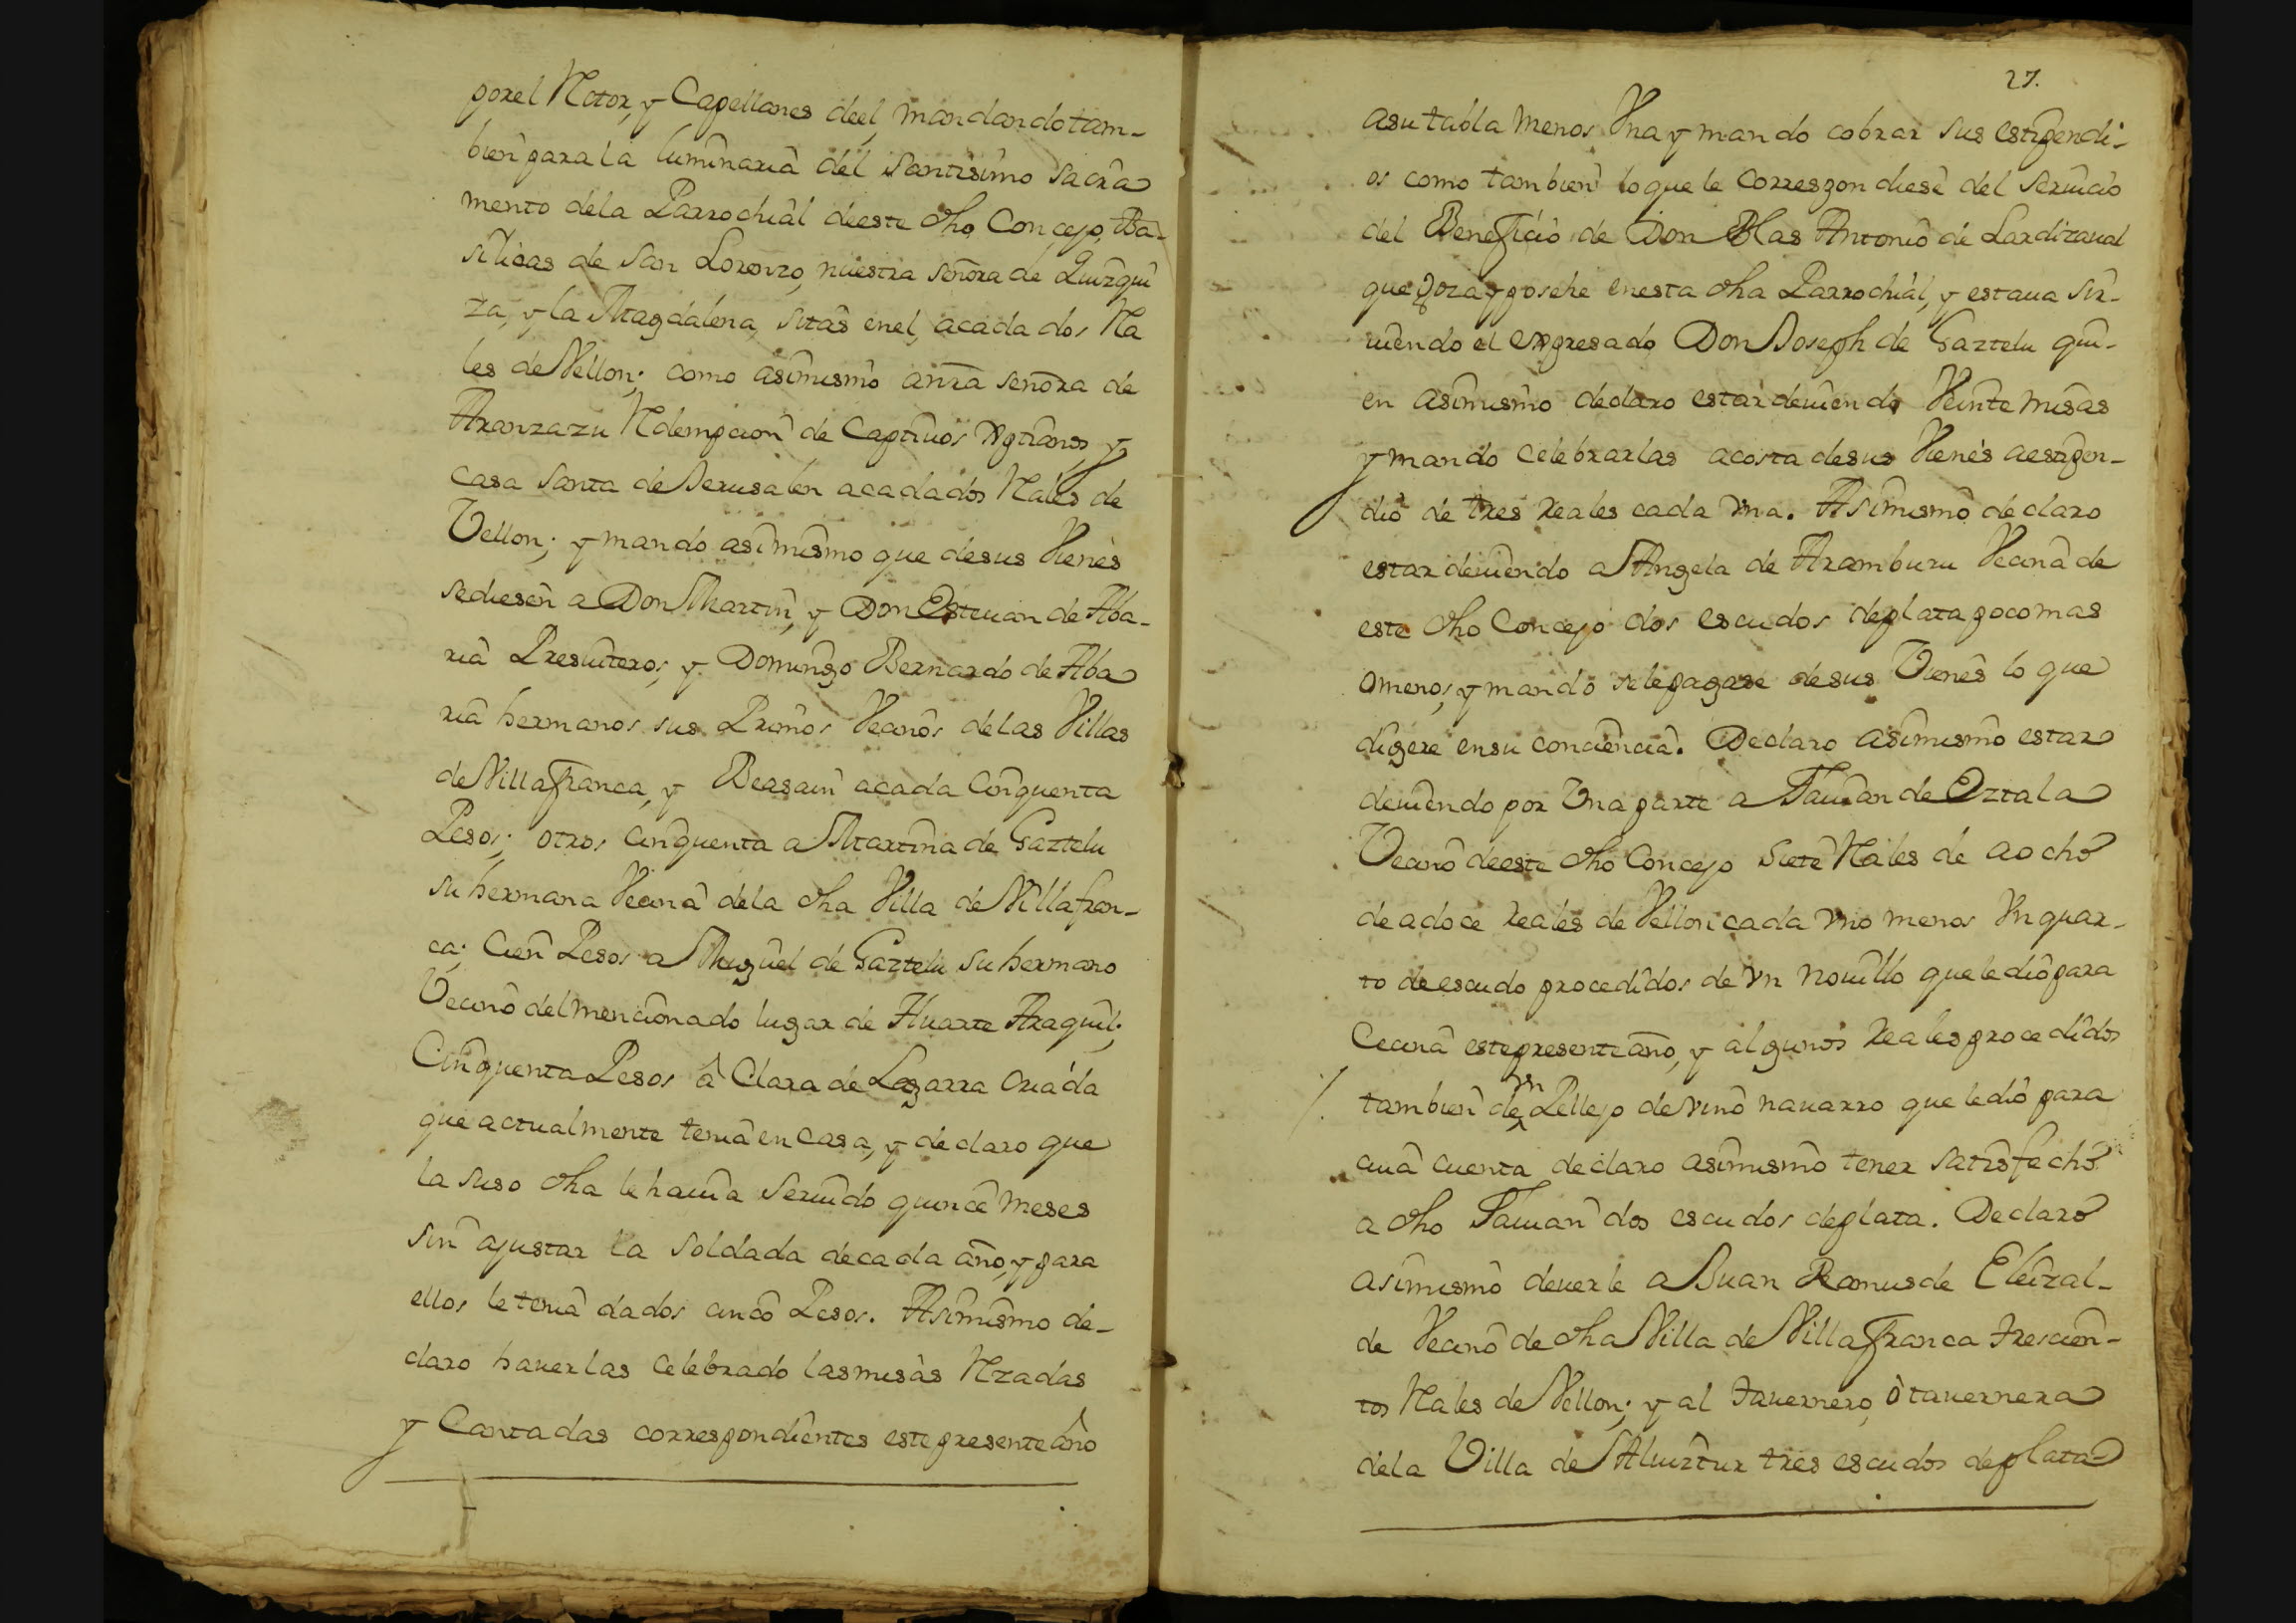 por el Rector, y Capellanes deel, mandando tam-
bien para la luminaria del Santisimo Sacra
mento dela Parrochial deeste dho Concejo, Ba-
silicas de San Lorenzo, nuestra señora de Quizqui
za, y la Magdalena, sitas enel, acada dos Rea
les de Vellon; como asimismo anra señora de
Aranzazu Redempcion de Captiuos Xptianos, y
Casa Santa de Jerusalen acadados Reales de
Vellon; y mando asimismo que desus Vienes
sediesen a Don Martin, y Don Esteuan de Aba-
ria Presuiteros, y Domingo Bernardo de Aba
ria hermanos sus Primos Vecinos delas Villas
de Villafranca, y Beasain acada Cinquenta
Pesos; otros cinquenta a Martina de Gaztelu
su hermana Vecina dela dha Villa de Villafran-
ca; Cien Pesos a Miguel de Gaztelu su hermano
Vecino del mencionado lugar de Huarte Araquil;
Cinquenta Pesos â Clara de Lazarra Criada
que actualmente tenia en casa, y declaro que
la suso dha le hauia seruido quince meses
sin ajustar la soldada decada año, y para
ellos le tenia dados cinco Pesos. Asimismo de-
claro hauerlas celebrado las misas Rezadas
y Cantadas correspondientes este presente año
27.
asu tabla menos Vna y mando cobrar sus estipendi-
os como tambien loque le correspondiese del seruicio
del Beneficio de Don Blas Antonio de Lardizaual
que goza y posehe enesta dha Parrochial, y estaua sir-
uiendo el expresado Don Joseph de Gaztelu qui-
en asimismo declaro estar deuiendo Veinte misas
y mando celebrarlas acosta desus Vienes aestipen-
dio de tres reales cada vna. Asimismo declaro
estar deuiendo a Angela de Aramburu Vecina de
este dho Concejo dos escudos deplata poco mas
omenos, y mando selepagase desus Vienes lo que
dijere ensu conciencia. Declaro asimismo estar
deuiendo por Vna parte a Fauian de Oztala
Vecino deeste dho Concejo siete Reales de aocho
de adoce reales de Vellon cada vno menos Vn quar-
to deescudo procedidos de vn nouillo que le dio para
Cecina este presente año, y algunos Reales procedidos
tambien de vn Pellejo de vino nauarro que le dio para
cuia cuenta declaro asimismo tener satisfecho
a dho Fauian dos escudos deplata. Declaro
asimismo deuerle a Juan Ramus de Eleizal-
de Vecino de dha Villa de Villafranca trescien-
tos Reales de Vellon; y al tauernero, ò tauernera
dela Villa de Aluiztur tres escudos deplata